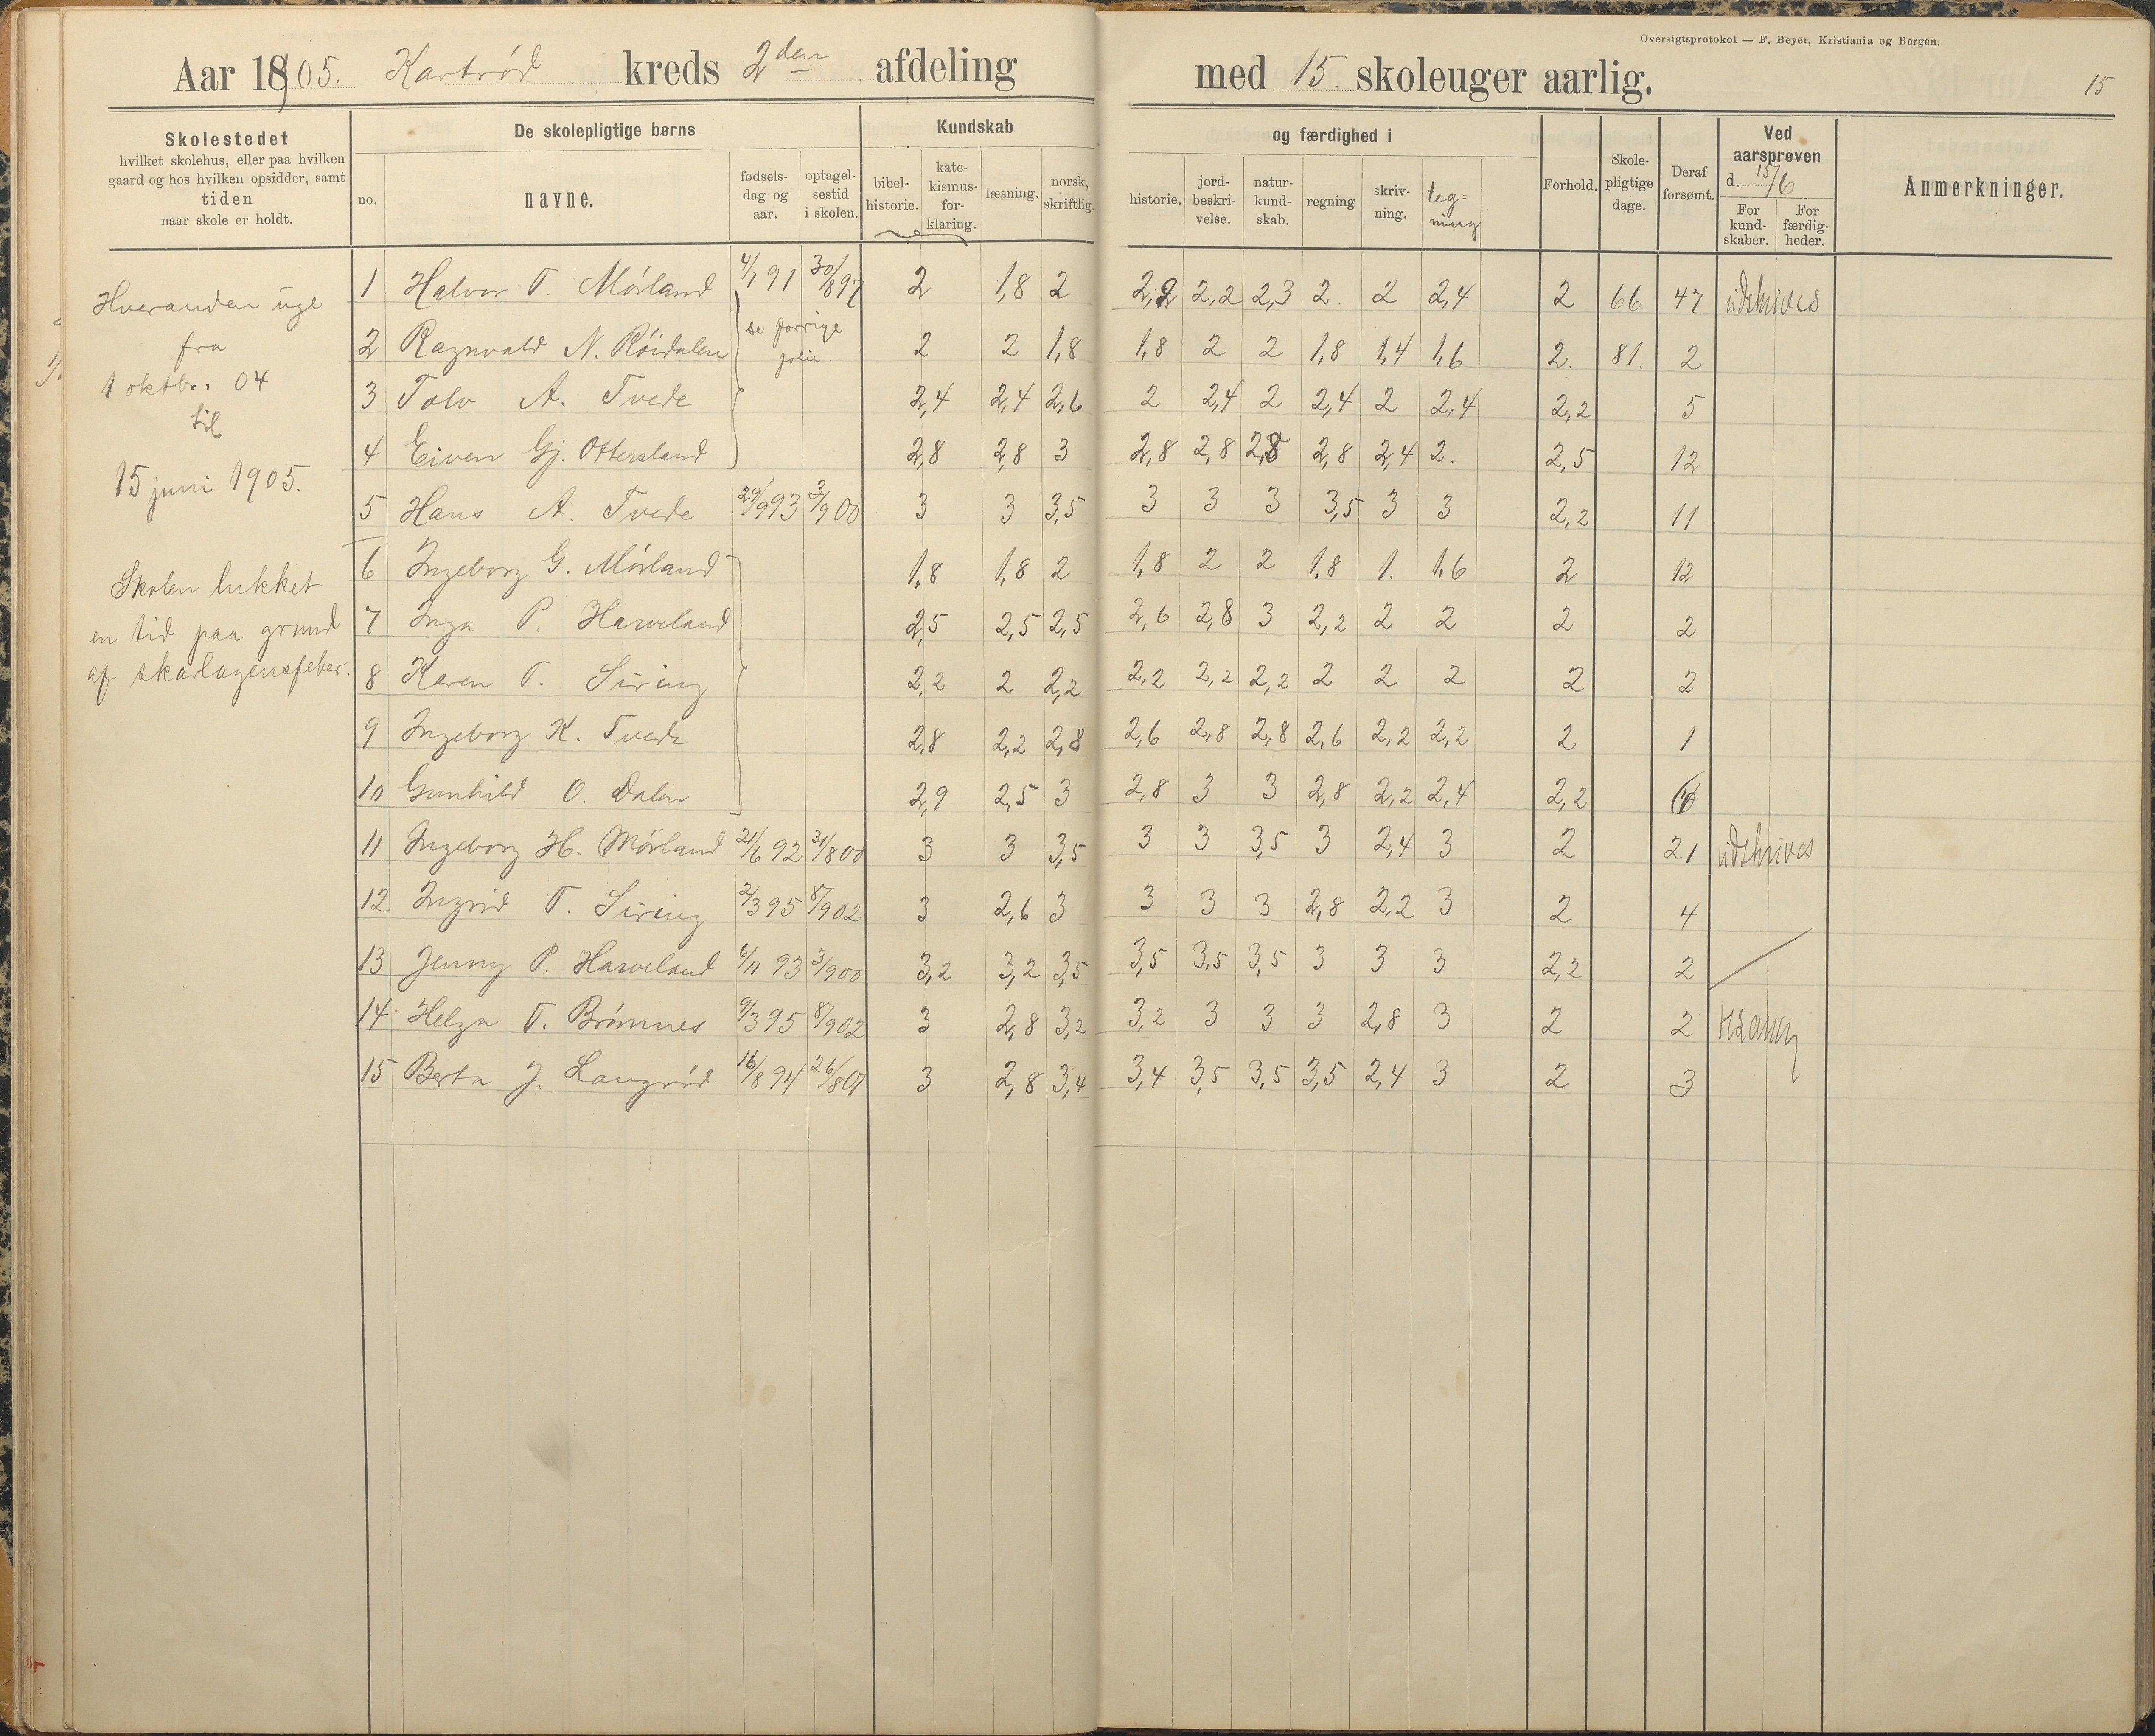 Oversigtsprotokol — F. Beyer, Kristiania og Bergen.
Aar 1905. Kartrød kreds 2den afdeling med 15 skoleuger aarlig. 15
Skolestedet
hvilket skolehus, eller paa hvilken
gaard og hos hvilken opsidder, samt
tiden
naar skole er holdt.
De skolepligtige børns
no. navne. fødselsdag og aar. optagelsestid i skolen.
Kundskab og færdighed i
bibelhistorie. katekismusforklaring. læsning. norsk, skriftlig. historie. jordbeskrivelse. naturkundskab. regning skrivning. tegning
Forhold. Skolepligtige dage. Deraf forsømt.
Ved aarsprøven d. 15/6
For kundskaber. For færdigheder.
Anmerkninger.
Hveranden uge
fra
1 oktbr. 04
til
15 juni 1905.
Skolen lukket
en tid paa grund
af skarlagensfeber.
1 Halvor T. Mørland 4/1 91 30/8 97 2 1,8 2 2,2 2,2 2,3 2. 2 2,4 2 66 47 udskrives
se forrige
folie.
2 Ragnvald N. Røidalen 2 2 1,8 1,8 2 2 1,8 1,4 1,6 2. 81. 2
3 Tolv A. Tvede 2,4 2,4 2,6 2 2,4 2 2,4 2 2,4 2,2 5
4 Eiven Gj. Ottersland 2,8 2,8 3 2,8 2,8 2,8 2,8 2,4 2. 2,5 12
5 Hans A. Tvede 29/9 93 3/9 00 3 3 3,5 3 3 3 3,5 3 3 2,2 11
6 Ingeborg G. Mørland 1,8 1,8 2 1,8 2 2 1,8 1. 1,6 2 12
7 Inga P. Harveland 2,5 2,5 2,5 2,6 2,8 3 2,2 2 2 2 2
8 Karen T. Siring 2,2 2 2,2 2,2 2,2 2,2 2 2 2 2 2
9 Ingeborg K. Tvede 2,8 2,2 2,8 2,6 2,8 2,8 2,6 2,2 2,2 2 1
10 Gunhild O. Dalen 2,9 2,5 3 2,8 3 3 2,8 2,2 2,4 2,2
11 Ingeborg H. Mørland 21/6 92 31/8 00 3 3 3,5 3 3 3,5 3 2,4 3 2 21 udskrives
12 Ingrid T. Siring 2/3 95 8/9 02 3 2,6 3 3 3 3 2,8 2,2 3 2 4
13 Jenny P. Harveland 6/11 93 3/9 00 3,2 3,2 3,5 3,5 3,5 3,5 3 3 3 2,2 2
14 Helga T. Brømnes 9/3 95 8/9 02 3 2,8 3,2 3,2 3 3 3 2,8 3 2 2
15 Berta J. Langrød 16/8 94 26/8 01 3 2,8 3,4 3,4 3,5 3,5 3,5 2,4 3 2 3